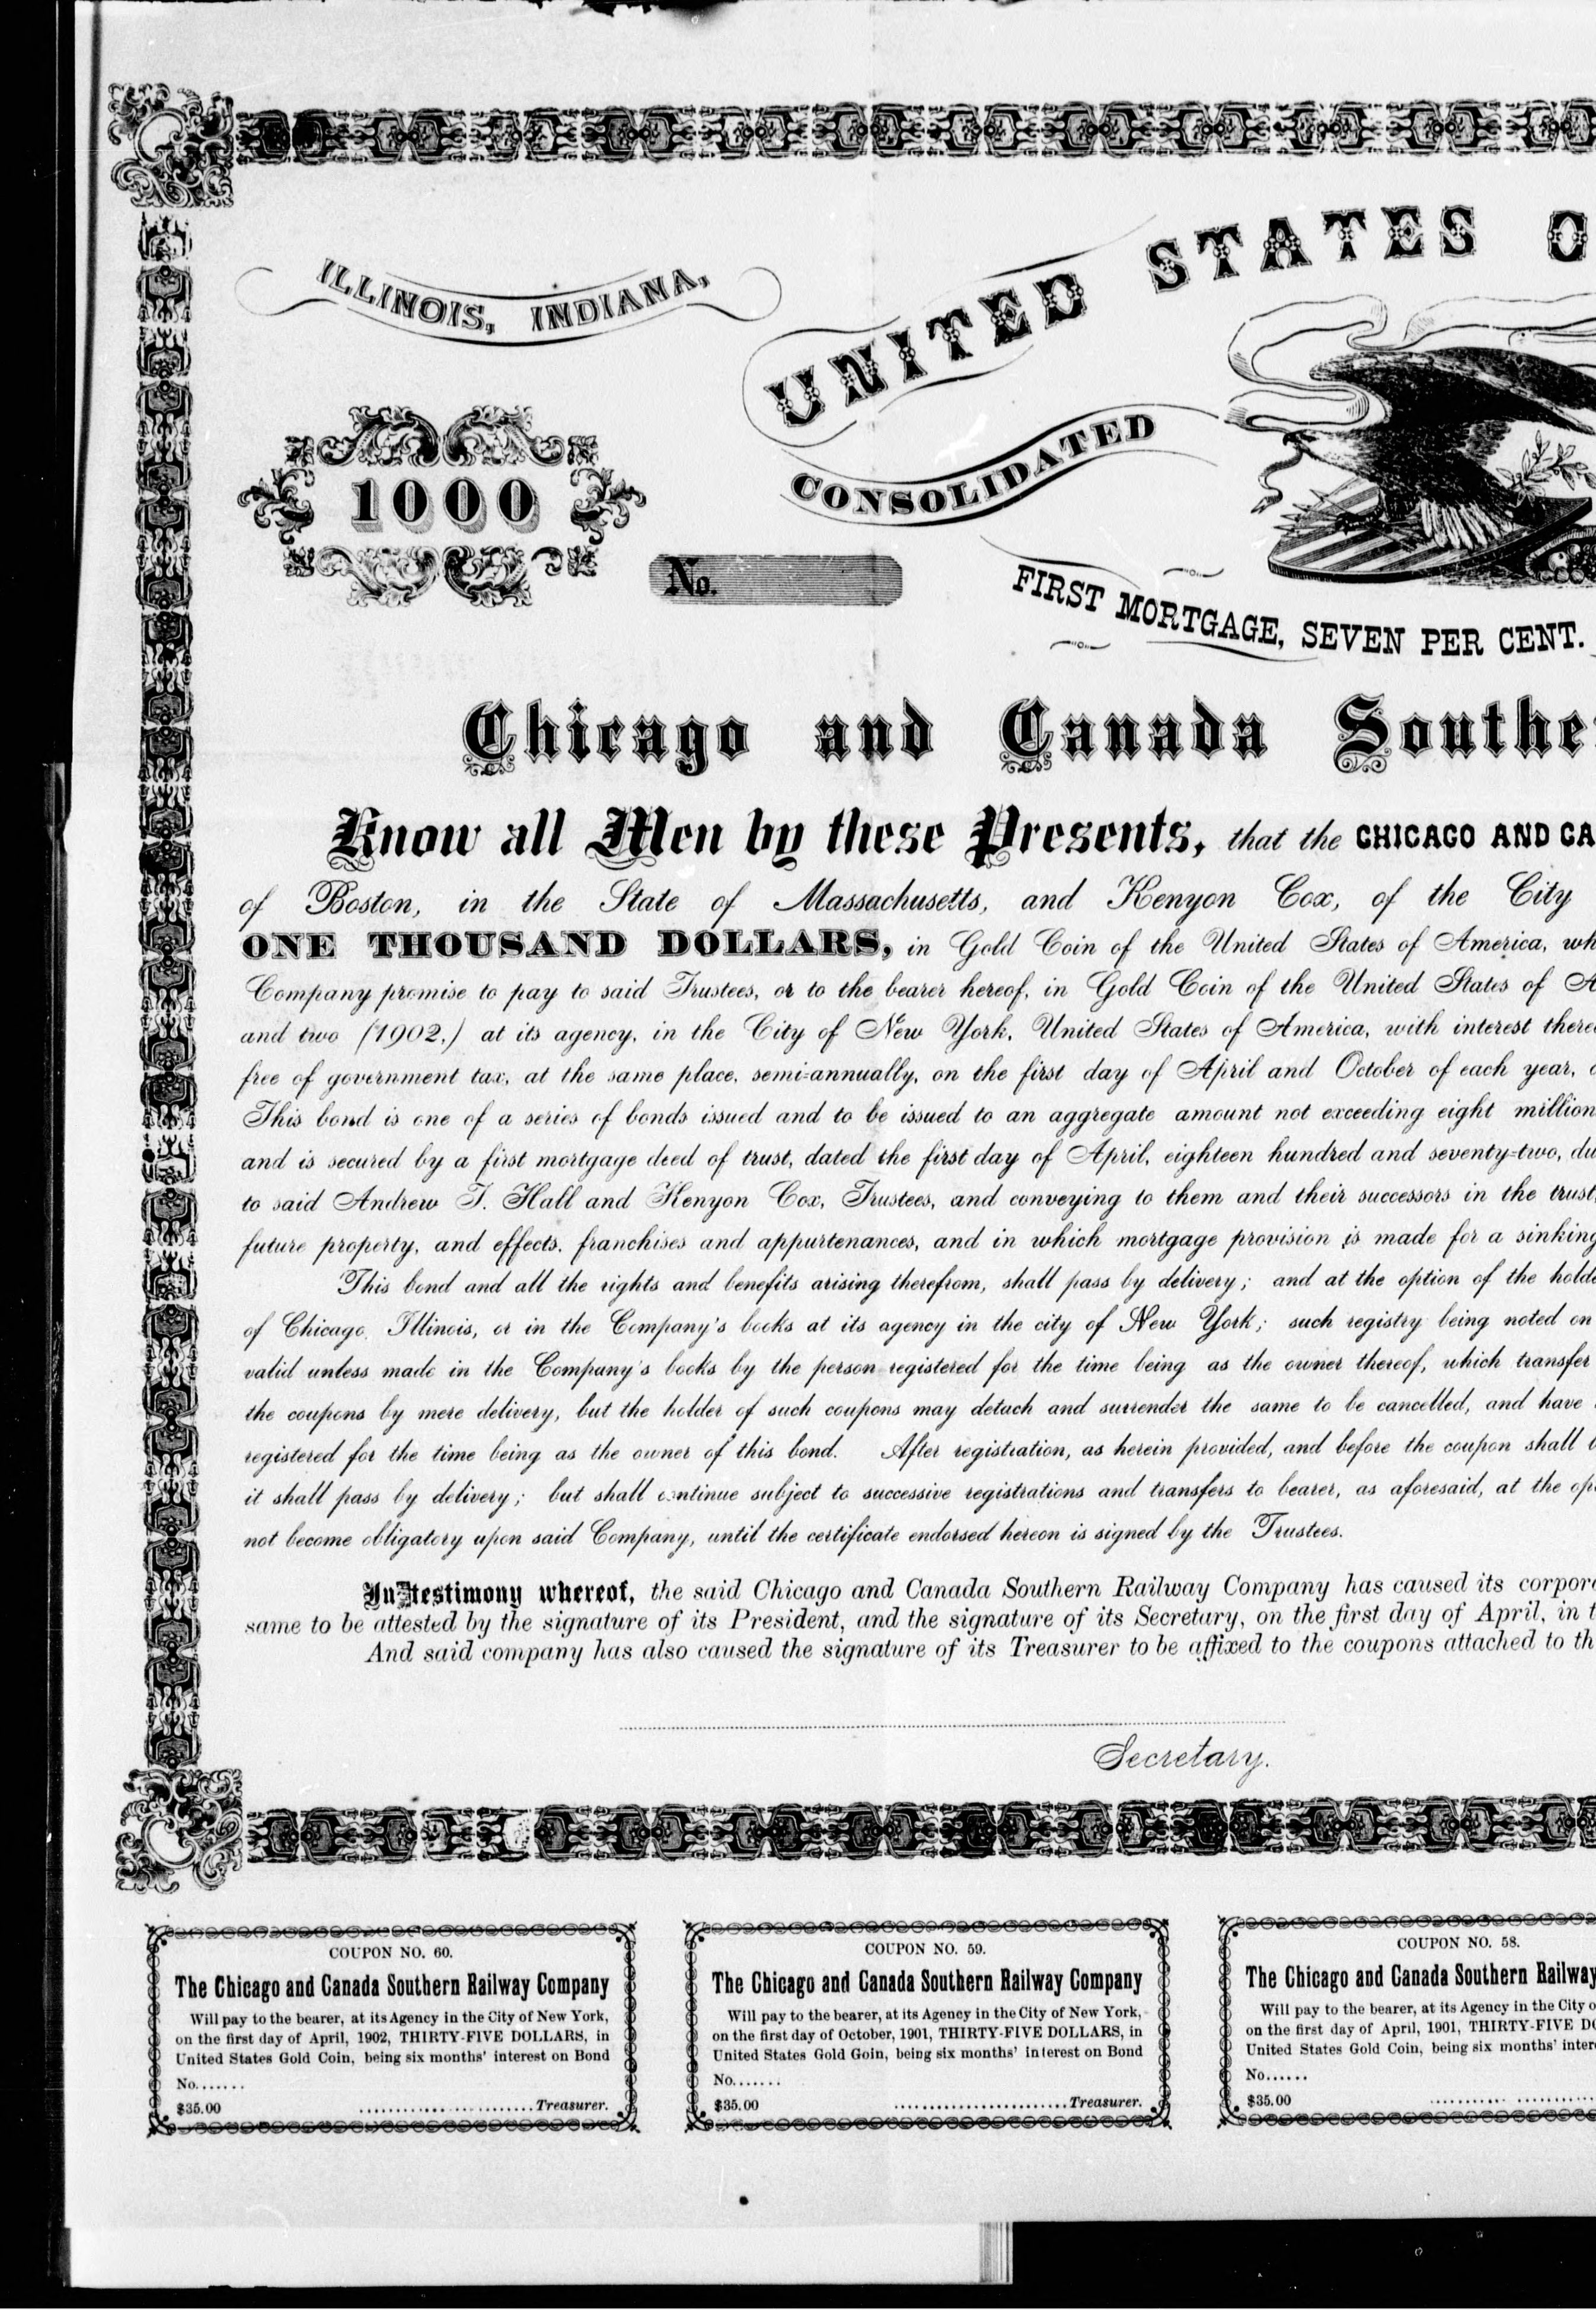 ILLINOIS, INDIANA,
UNITED STATES O
CONSOLIDATED
1000
No.
FIRST MORTGAGE, SEVEN PER CENT.
Chicago and Canada Southe
Know all Men by these Presents, that the CHICAGO AND CA
of Boston, in the State of Massachusetts, and Kenyon Cox, of the City
ONE THOUSAND DOLLARS, in Gold Coin of the United States of America, wh
Company promise to pay to said Trustees, or to the bearer hereof, in Gold Coin of the United States of A
and two (1902,) at its agency, in the City of New York, United States of America, with interest there
free of government tax, at the same place, semi-annually, on the first day of April and October of each year,
This bond is one of a series of bonds issued and to be issued to an aggregate amount not exceeding eight million
and is secured by a first mortgage deed of trust, dated the first day of April, eighteen hundred and seventy-two, du
to said Andrew T. Hall and Kenyon Cox, Trustees, and conveying to them and their successors in the trust,
future property, and effects, franchises and appurtenances, and in which mortgage provision is made for a sinking
This bond and all the rights and benefits arising therefrom, shall pass by delivery; and at the option of the holde
of Chicago, Illinois, or in the Company's books at its agency in the city of New York; such registry being noted on
valid unless made in the Company's books by the person registered for the time being as the owner thereof, which transfer
the coupons by mere delivery, but the holder of such coupons may detach and surrender the same to be cancelled, and have
registered for the time being as the owner of this bond. After registration, as herein provided, and before the coupon shall b
it shall pass by delivery; but shall continue subject to successive registrations and transfers to bearer, as aforesaid, at the op
not become obligatory upon said Company, until the certificate endorsed hereon is signed by the Trustees.
In testimony whereof, the said Chicago and Canada Southern Railway Company has caused its corpor
same to be attested by the signature of its President, and the signature of its Secretary, on the first day of April, in t
And said company has also caused the signature of its Treasurer to be affixed to the coupons attached to th
Secretary.
COUPON NO. 60.
The Chicago and Canada Southern Railway Company
Will pay to the bearer, at its Agency in the City of New York,
on the first day of April, 1902, THIRTY-FIVE DOLLARS, in
United States Gold Coin, being six months' interest on Bond
No.......
$35.00 ........................Treasurer.
COUPON NO. 59.
The Chicago and Canada Southern Railway Company
Will pay to the bearer, at its Agency in the City of New York,
on the first day of October, 1901, THIRTY-FIVE DOLLARS, in
United States Gold Goin, being six months' interest on Bond
No.......
$35.00 ........................Treasurer.
COUPON NO. 58.
The Chicago and Canada Southern Railway
Will pay to the bearer, at its Agency in the City o
on the first day of April, 1901, THIRTY-FIVE DO
United States Gold Coin, being six months' inter
No......
$35.00